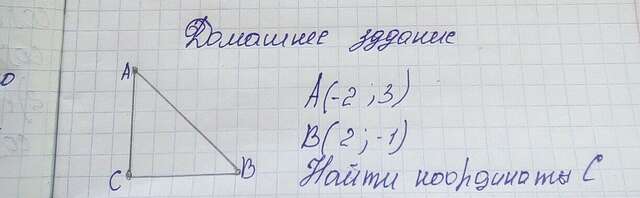 Домашнее здание
A
A(-2; 3)
B(2; -1)
C
B
Найти координаты C